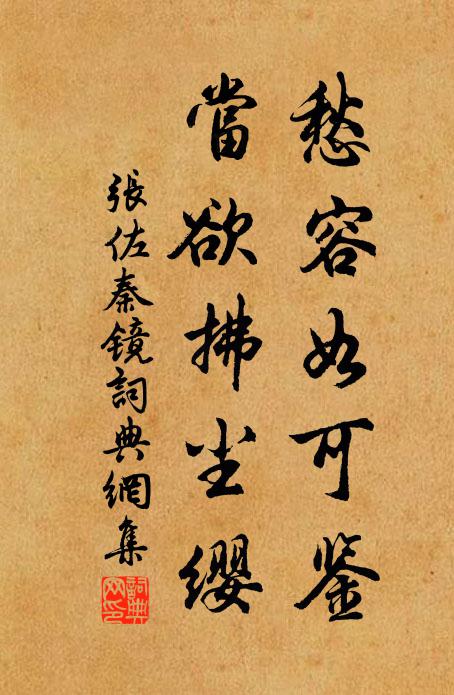 愁容如可鉴
當欲拂尘缨
張佐秦镜詞典網集
詞典
网印